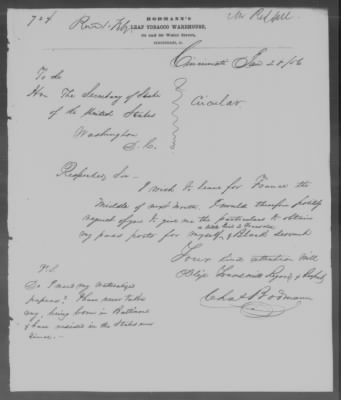 724
BODMANN'S
LEAF TOBACCO WAREHOUSE,
CINCINNATI, O.
Cincinnati Jan 20/66
To the
Hon The Secretary of State
of the United States
Washington
D.C.
Circular
Respected Sir
I wish to leave for France the
Middle of next month. I would therefore politely
request of you to give me the particulars to obtain
my pass ports for myself, & Black servant
Your kind attention will
Oblige Yours most
Chas Bodmann
P.S.
Do I need my naturalized
papers? I have never taken
any, being born in Baltimore
& have resided in the States ever
since.